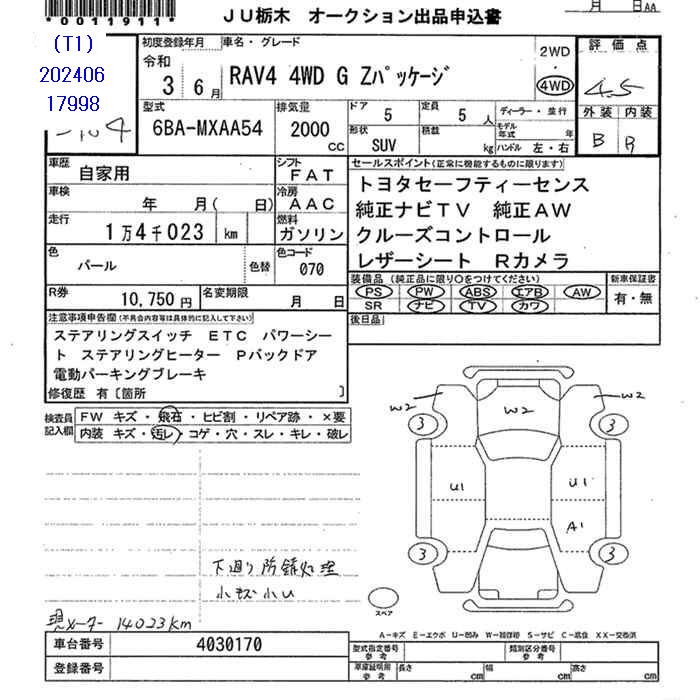 *0011911*
JU栃木 オークション出品申込書
月 日AA
(T1)
202406
17998
初度登録年月
令和
3 6月
車名・グレード
RAV4 4WD G Zパッケージ
2WD
・
4WD
評価点
4.5
外装 内装
B B
型式
6BA-MXAA54
排気量
2000
cc
ドア
5
定員
5 人
ディーラー・並行
モデル年式 年
形状
SUV
積載
kg
ハンドル 左・右
車歴
自家用
シフト
FAT
車検
年 月( 日)
冷房
AAC
走行
1万4千023 km
燃料
ガソリン
色
パール
色替
色コード
070
R券
10,750円
名変期限
月 日
セールスポイント(正常に機能するものに限ります)
トヨタセーフティーセンス
純正ナビTV 純正AW
クルーズコントロール
レザーシート Rカメラ
装備品 (純正品に限り○をつけてください)
PS PW ABS エアB AW
SR ナビ TV カワ
新車保証書
有・無
後日品
注意事項申告欄(不具合内容等は具体的に記入して下さい)
ステアリングスイッチ ETC パワーシー
ト ステアリングヒーター Pバックドア
電動パーキングブレーキ
修復歴 有〔箇所 〕
検査員
記入欄
FW キズ・飛石・ヒビ割・リペア跡・×要
内装 キズ・汚レ・コゲ・穴・スレ・キレ・破レ
W2 W2 W2
3 3
U1 U1
A1
3 3
スペア
下廻り防錆処理
小キズ小U
現メーター 14023km
車台番号 4030170
登録番号
A-キズ E-エクボ U-凹み W-補修跡 S-サビ C-腐食 XX-交換済
型式指定番号
参考
類別区分番号
参考
車庫証明用
参考
長さ cm 幅 cm 高さ cm